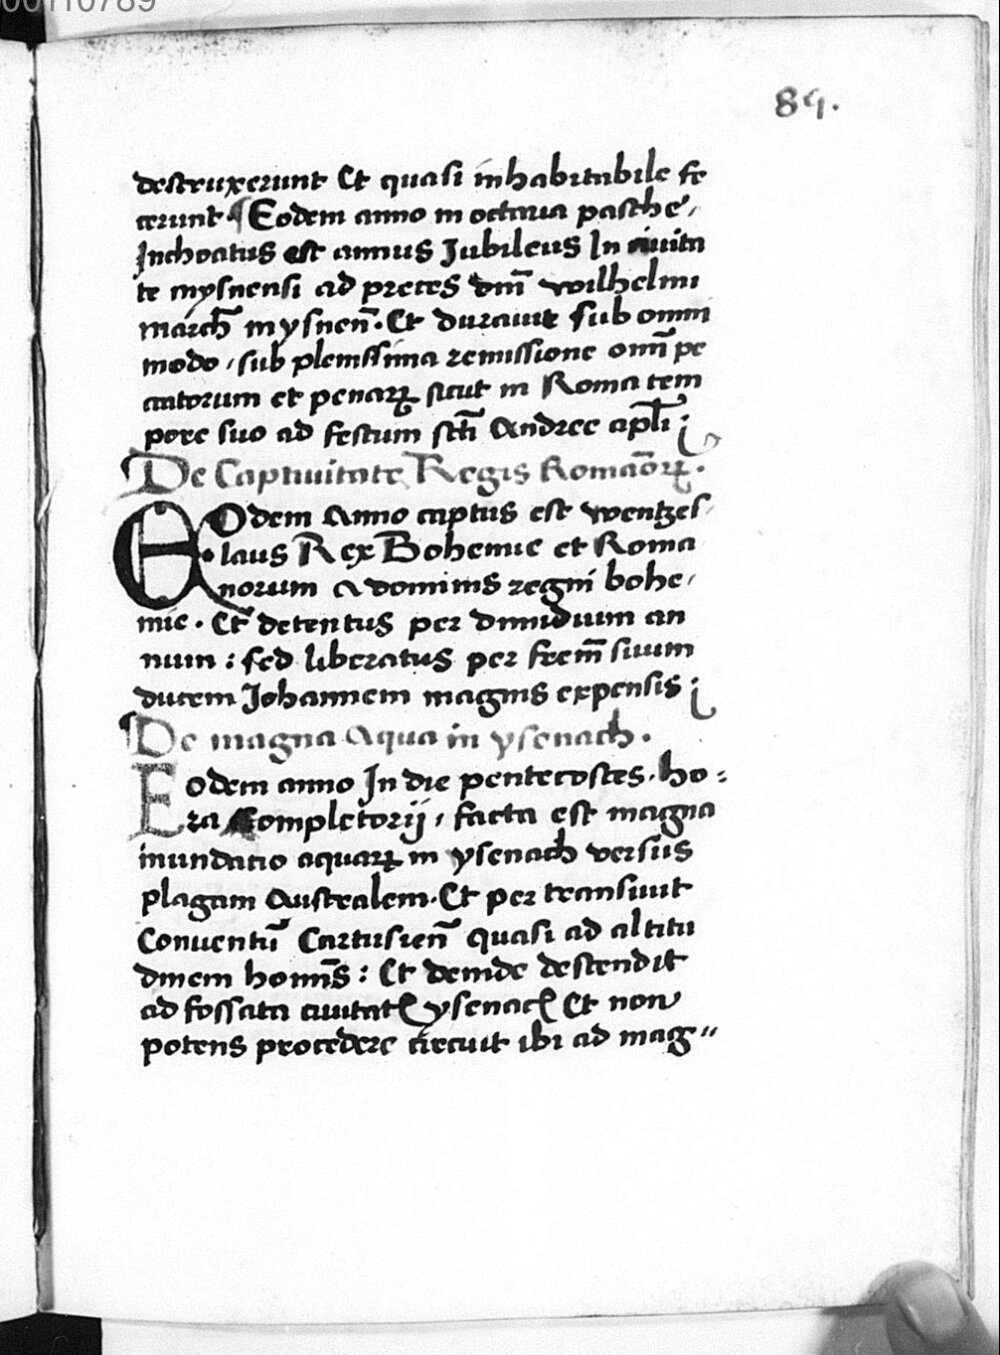 00110789
89.
destruxerunt Et quasi inhabitabile fe
cerunt. ¶ Eodem anno in octava pasche,
Inchoatus est annus Jubileus In civita
te mysnensi ad preces dm̄ wilhelmi
march̄ mysnen̄. Et duravit sub omni
modo, sub plenissima remissione om̄ pe
catorum et penaꝝ sicut in Roma tem
pore suo ad festum sc̄ti Andree apl̄i ;
De Captivitate Regis Romāoꝝ.
Eodem Anno captus est wentzes,
laus Rex Bohemie et Roma
norum a dominis regni bohe,
mie. Et detentus per dimidium an
num : sed liberatus per frem̄ suum
ducem Johannem magnis expensis ;
De magna Aqua in ysenach.
Eodem anno In die pentecostes. ho:
ra Completorij, facta est magna
inundatio aquaꝝ in ysenach versus
plagam Australem. Et per transivit
Conventū Cartusien̄ quasi ad altitu
dinem homīs : Et deinde descendit
ad fossata civitatꝭ ysenacꝭ Et non
potens procedere circuit ibi ad mag"